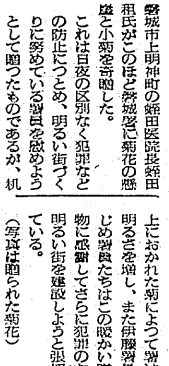 磐城市上明神町の蛭田医院長蛭田
氏がこのほど磐城署に菊花の懸
崖と小菊を寄贈した。
これは日夜の区別なく犯罪など
の防止につとめ、明るい街づく
りに努めている署員を慰めよう
として贈つたものであるが、机
上におかれた菊によつて署
明るさを増し、また伊藤署
じめ署員たちはこの暖かい
物に感謝してさらに犯罪の
明るい街を建設しようと張
ている。
(写真は贈られた菊花)